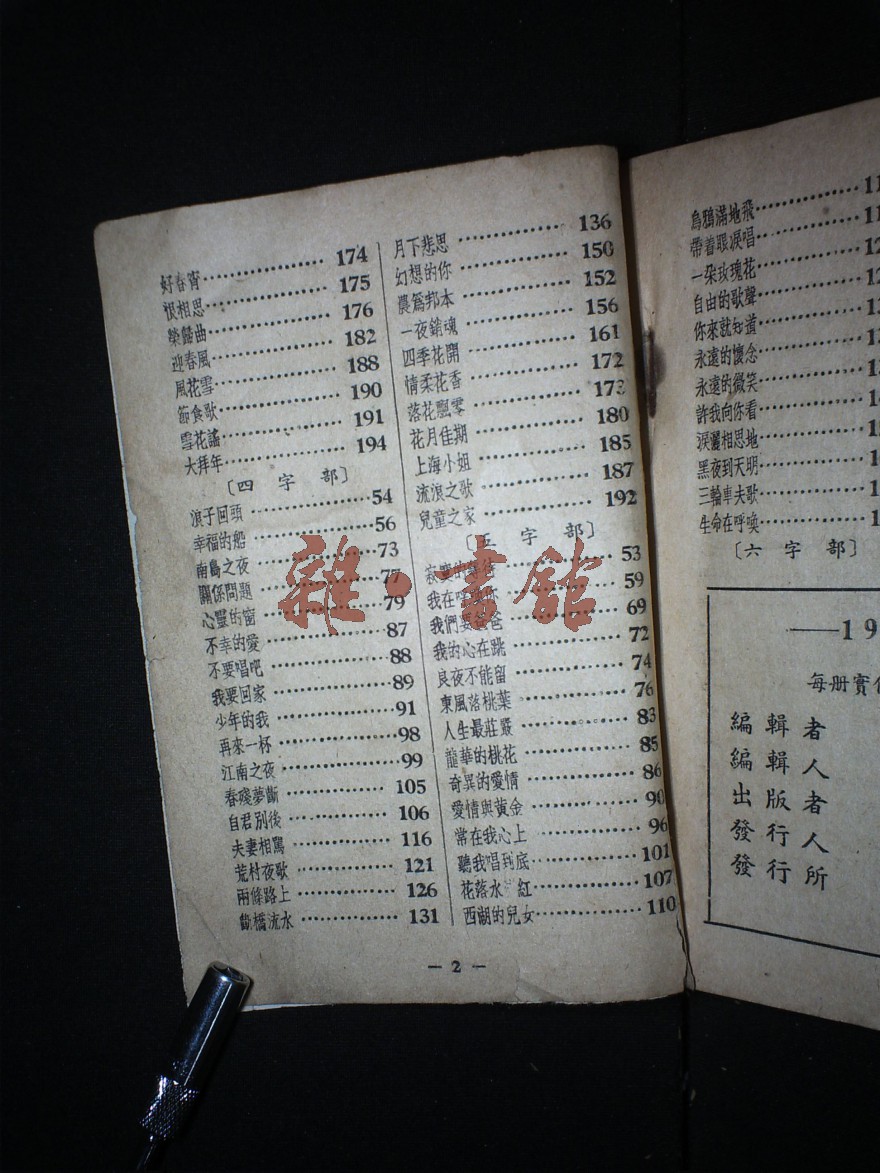 好春宵 174
恨相思 175
榮歸曲 176
迎春風 182
風花雪 188
節食歌 190
雪花謠 191
大拜年 194
〔四字部〕
浪子回頭 54
幸福的船 56
南島之夜 73
關係問題 77
心靈的窗 79
不幸的愛 87
不要唱吧 88
我要回家 89
少年的我 91
再來一杯 98
江南之夜 99
春殘夢斷 105
自君別後 106
夫妻相駡 116
荒村夜歌 121
兩條路上 126
斷橋流水 131
月下悲思 136
幻想的你 150
農爲邦本 152
一夜銷魂 156
四季花開 161
情柔花香 172
落花飄零 173
花月佳期 180
上海小姐 185
流浪之歌 187
兒童之家 192
〔五字部〕
53
我在呼喚你 59
我們要爸爸 69
我的心在跳 72
良夜不能留 74
東風落桃葉 76
人生最莊嚴 83
龍華的桃花 85
奇異的愛情 86
愛情與黃金 90
常在我心上 96
聽我唱到底 101
花落水 紅 107
西湖的兒女 110
— 2 —
雜·書館
烏鴉滿地飛
帶着眼淚唱
一朶玫瑰花
自由的歌聲
你來就知道
永遠的懷念
永遠的微笑
許我向你看
淚灑相思地
黑夜到天明
三輪車夫歌
生命在呼喚
〔六字部〕
—19
每册實
編輯者
編輯人
出版者
發行人
發行所